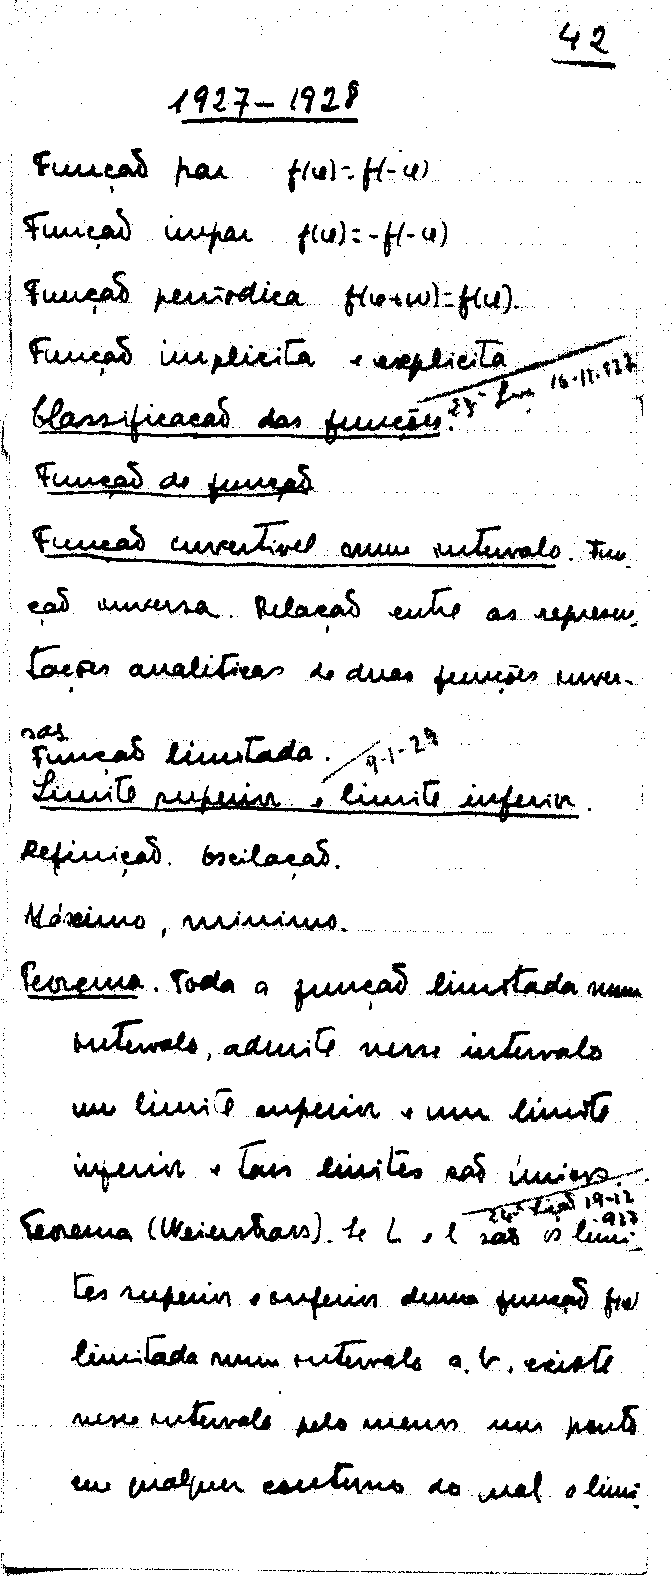 42
1927-1928
Função par f(x)=f(-x)
Função impar f(x)=-f(-x)
Função periódica f(x+w)=f(x).
Função implicita e explicita
Classificação das funções. 23ª 16-12-927
Função de função
Função invertivel num intervalo. Fun-
ção inversa. Relação entre as represen-
tações analiticas de duas funções inver-
sas
Função limitada. 9-1-29
Limite superior e limite inferior.
Definição. Oscilação.
Máximo, minimo.
Teorema. Toda a função limitada num
intervalo, admite nesse intervalo
um limite superior e um limite
inferior e tais limites são únicos.
24ª Lição 19-12-927
Teorema (Weierstrass). Se L e l são os limi-
tes superior e inferior duma função f(x)
limitada num intervalo a, b, existe
nesse intervalo pelo menos um ponto
em qualquer contorno do qual o limi-